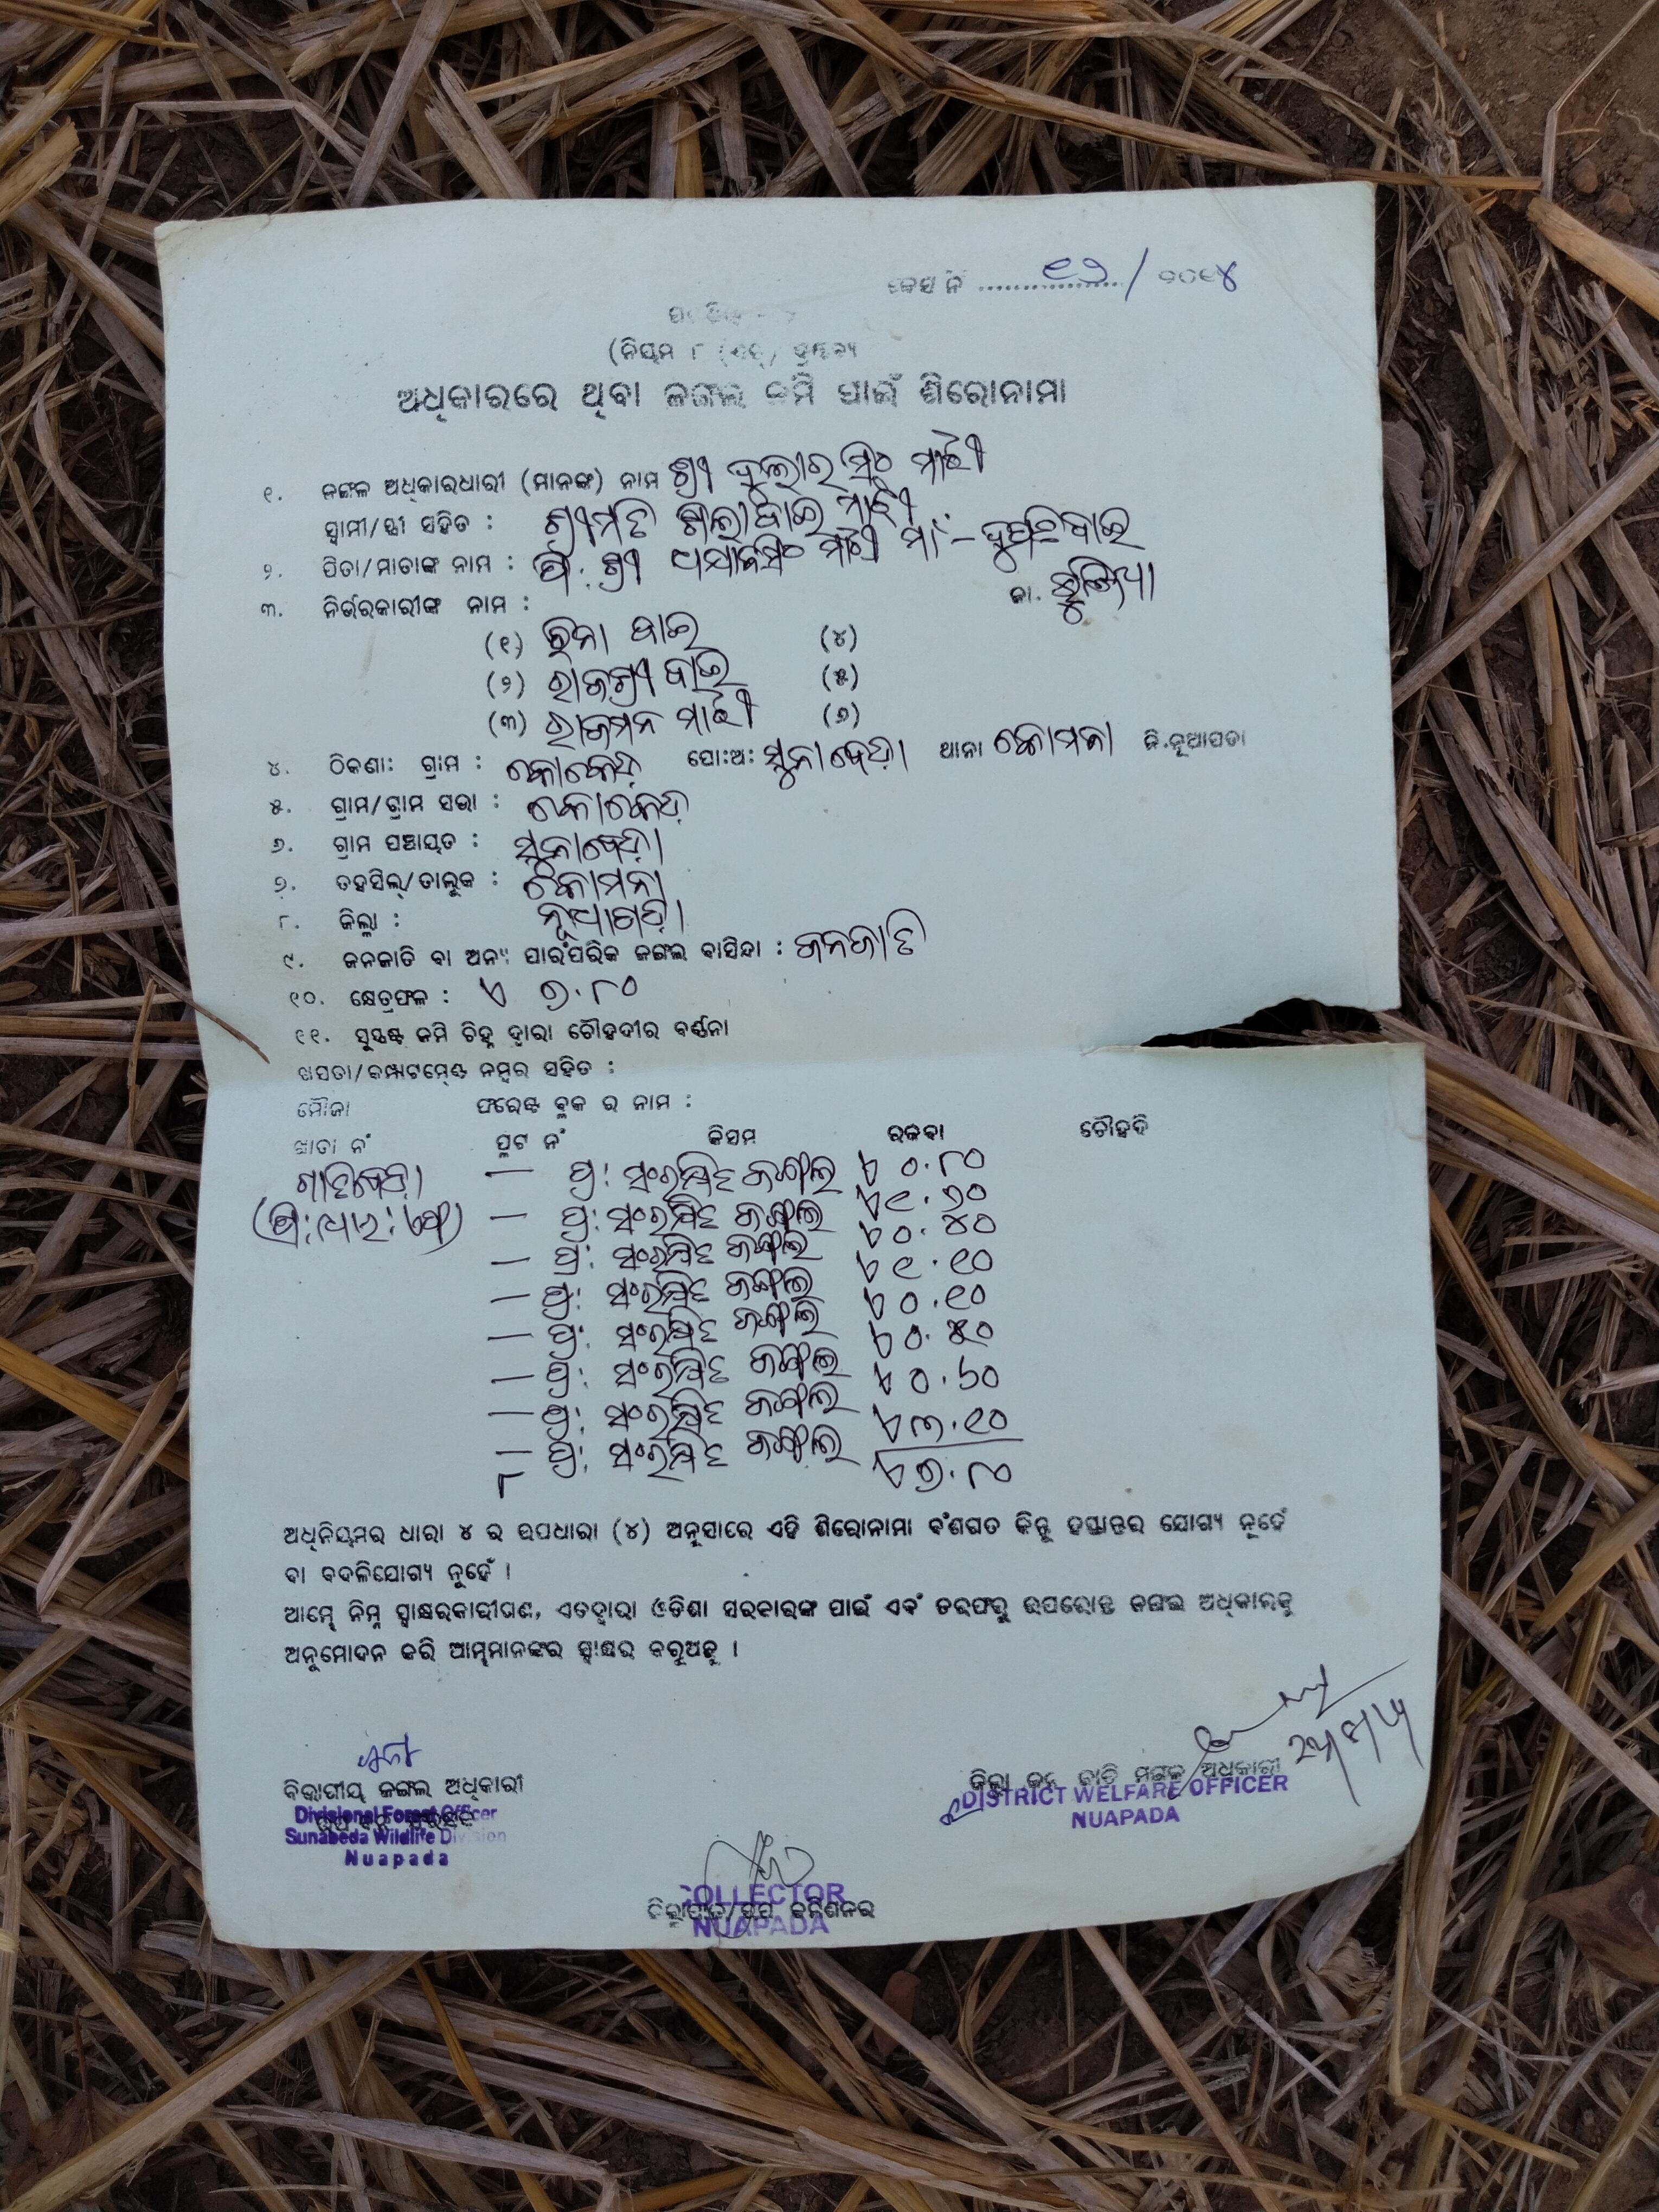 କେସ ନଂ .................. ୧୨ / ୨୦୧୪
(ନିୟମ ୮ (ଏଚ୍) ଦ୍ରଷ୍ଟବ୍ୟ
ଅଧିକାରରେ ଥିବା ଜଙ୍ଗଲ ଜମି ପାଇଁ ଶିରୋନାମା
୧. ଜଙ୍ଗଳ ଅଧିକାରଧାରୀ (ମାନଙ୍କ) ନାମ ଶ୍ରୀ ଦୁଲାର ସିଂ ମାଝୀ
ସ୍ୱାମୀ/ସ୍ତ୍ରୀ ସହିତ : ଶ୍ରୀମତି ବାଇ ମାଝୀ
୨. ପିତା/ମାତାଙ୍କ ନାମ : ପି: ଶ୍ରୀ ମାଝୀ ମାଁ -
୩. ନିର୍ଭରକାରୀଙ୍କ ନାମ : ଜା. ଭୁଞ୍ଜିଆ
(୧) ରିନା ବାଇ (୪)
(୨) ରାଜଶ୍ରୀ ବାଇ (୫)
(୩) ରାଜମନ ମାଝୀ (୬)
୪. ଠିକଣା: ଗ୍ରାମ : କୋକେଡ଼ା ପୋ:ଅ: ସୁନାବେଡ଼ା ଥାନା କୋମନା ଜି.ନୂଆପଡା
୫. ଗ୍ରାମ/ଗ୍ରାମ ସଭା : କୋକେଡ଼ା
୬. ଗ୍ରାମ ପଞ୍ଚାୟତ : ସୁନାବେଡ଼ା
୭. ତହସିଲ୍/ତାଲୁକ : କୋମନା
୮. ଜିଲ୍ଲା : ନୂଆପଡ଼ା
୯. ଜନଜାତି ବା ଅନ୍ୟ ପାରଂପରିକ ଜଙ୍ଗଲ ବାସିନ୍ଦା : ଜନଜାତି
୧୦. କ୍ଷେତ୍ରଫଳ : ଏ ୭.୮୦
୧୧. ସୁସ୍ପଷ୍ଟ ଜମି ଚିହ୍ନ ଦ୍ୱାରା ଚୌହଦୀର ବର୍ଣ୍ଣନା
ଖସଡା/କମ୍ପାଟମେଣ୍ଟ ନମ୍ବର ସହିତ :
ମୌଜା ଫରେଷ୍ଟ ବ୍ଲକ ର ନାମ :
ଖାତା ନଂ ପ୍ଲଟ ନଂ କିସମ ରକବା ଚୌହଦି
— ପ୍ର: ସଂରକ୍ଷିତ ଜଙ୍ଗଲ ଏ ୦.୮୦
— ପ୍ର: ସଂରକ୍ଷିତ ଜଙ୍ଗଲ ଏ ୧.୨୦
— ପ୍ର: ସଂରକ୍ଷିତ ଜଙ୍ଗଲ ଏ ୦.୪୦
— ପ୍ର: ସଂରକ୍ଷିତ ଜଙ୍ଗଲ ଏ ୧.୧୦
— ପ୍ର: ସଂରକ୍ଷିତ ଜଙ୍ଗଲ ଏ ୦.୧୦
— ପ୍ର: ସଂରକ୍ଷିତ ଜଙ୍ଗଲ ଏ ୦.୫୦
— ପ୍ର: ସଂରକ୍ଷିତ ଜଙ୍ଗଲ ଏ ୦.୬୦
— ପ୍ର: ସଂରକ୍ଷିତ ଜଙ୍ଗଲ ଏ ୩.୧୦
୮ ଏ ୭.୮୦
ଅଧିନିୟମର ଧାରା ୪ ର ଉପଧାରା (୪) ଅନୁସାରେ ଏହି ଶିରୋନାମା ବଂଶଗତ କିନ୍ତୁ ହସ୍ତାନ୍ତର ଯୋଗ୍ୟ ନୁହେଁ
ବା ବଦଳିଯୋଗ୍ୟ ନୁହେଁ ।
ଆମ୍ଭେ ନିମ୍ନ ସ୍ୱାକ୍ଷରକାରୀଗଣ, ଏତଦ୍ୱାରା ଓଡିଶା ସରକାରଙ୍କ ପାଇଁ ଏବଂ ତରଫରୁ ଉପରୋକ୍ତ ଜଙ୍ଗଲ ଅଧିକାରକୁ
ଅନୁମୋଦନ କରି ଆମ୍ଭମାନଙ୍କର ସ୍ୱାକ୍ଷର କରୁଅଛୁ ।
ବିଭାଗୀୟ ଜଙ୍ଗଲ ଅଧିକାରୀ
Divisional Forest Officer
Sunabeda Wildlife Division
Nuapada
ଜିଲ୍ଲା ଜନ ଜାତି ମଙ୍ଗଳ ଅଧିକାରୀ
DISTRICT WELFARE OFFICER
NUAPADA
COLLECTOR
ଜିଲ୍ଲାପାଳ/ଡେପୁଟି କମିଶନର
NUAPADA